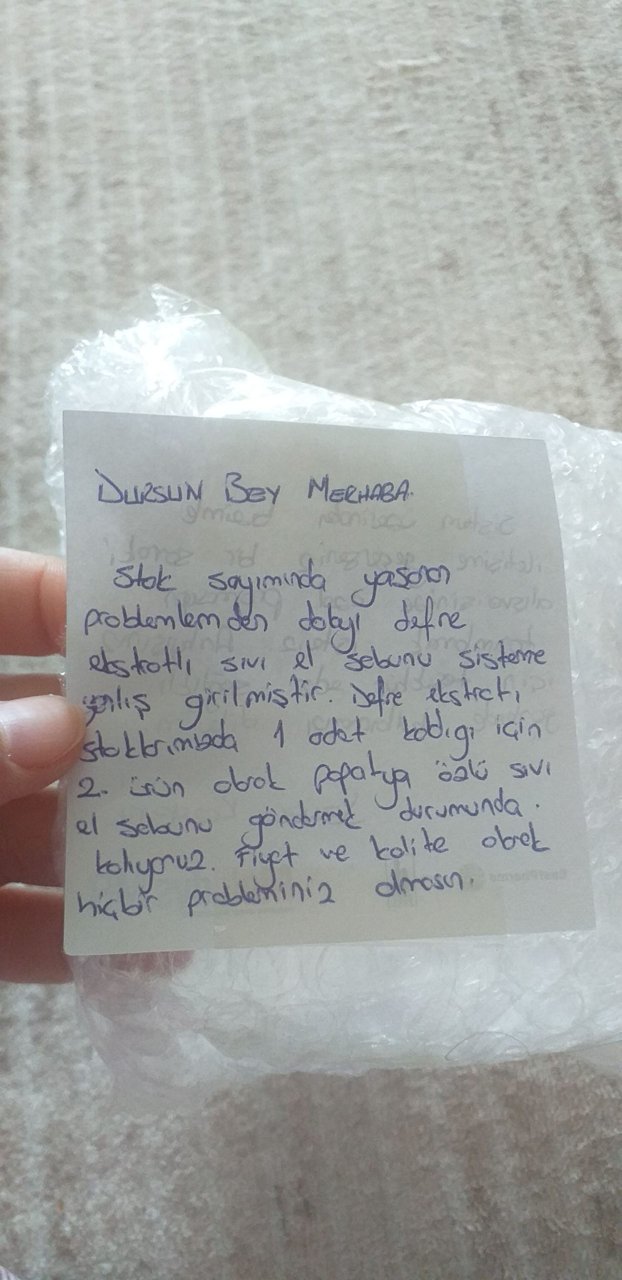 DURSUN BEY MERHABA.
Stok sayımında yaşanan
problemlemden dolayı defne
ekstratlı sıvı el sabunu sisteme
yanlış girilmiştir. Defne ekstratı
stoklarımızda 1 adet kaldığı için
2. ürün olarak papatya özlü sıvı
el sabunu göndermek durumunda
kalıyoruz. Fiyat ve kalite olarak
hiçbir probleminiz olmasın.